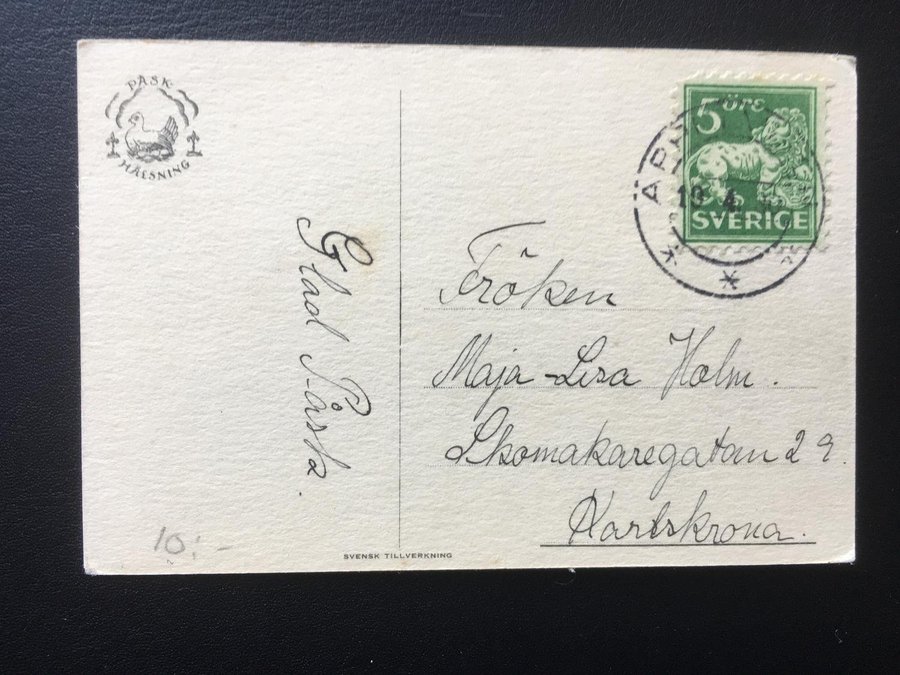 PÅSK-
HÄLSNING
Glad Påsk.
5 öre
SVERIGE
19 4
Fröken
Maja-Lisa Holm.
Skomakaregatan 29.
Karlskrona.
10:-
SVENSK TILLVERKNING